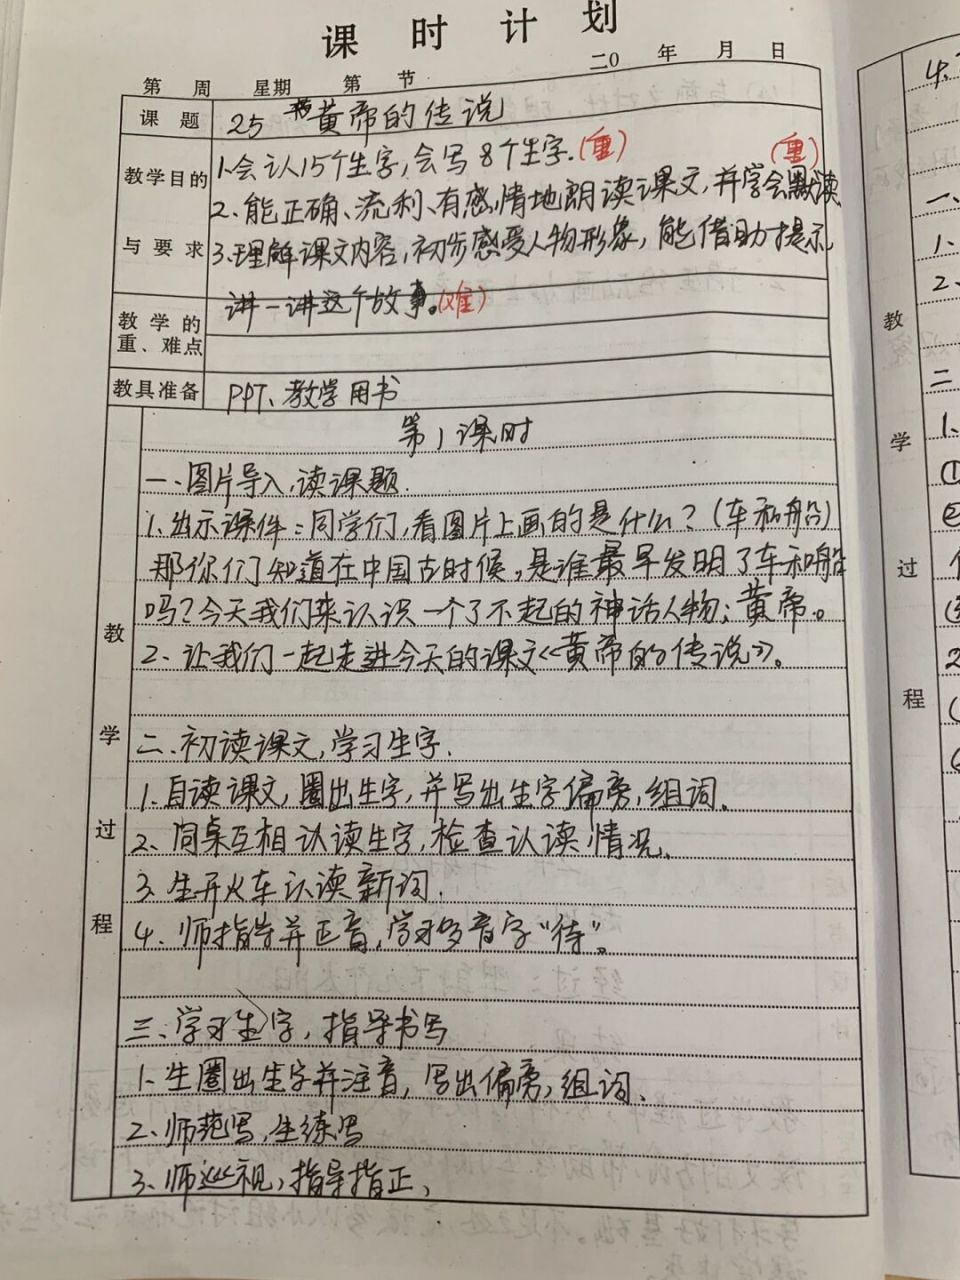 课 时 计 划
二0 年 月 日
第 周 星期 第 节
课 题 25 黄帝的传说
教学目的与要求
1.会认15个生字,会写8个生字.(重) (重)
2、能正确、流利、有感情地朗读课文,并学会默读
3.理解课文内容,初步感受人物形象,能借助提示
讲一讲这个故事。(难)
教 学 的
重、难点
教具准备 PPT、教学用书
教 学 过 程
第1课时
一、图片导入,读课题.
1.出示课件:同学们,看图片上画的是什么?(车和船)
那你们知道在中国古时候,是谁最早发明了车和船
吗?今天我们来认识一个了不起的神话人物:黄帝。
2、让我们一起走进今天的课文《黄帝的传说》。
二、初读课文,学习生字.
1.自读课文,圈出生字,并写出生字偏旁,组词、
2、同桌互相认读生字,检查认读情况、
3.生开火车认读新词.
4、师指导并正音,学习多音字“待”。
三、学习生字,指导书写
1、生圈出生字并注音,写出偏旁,组词、
2、师范写,生练写
3、师巡视,指导指正、
教 学 过 程
4.
一、
1.
2、
二
1、
①
②
2